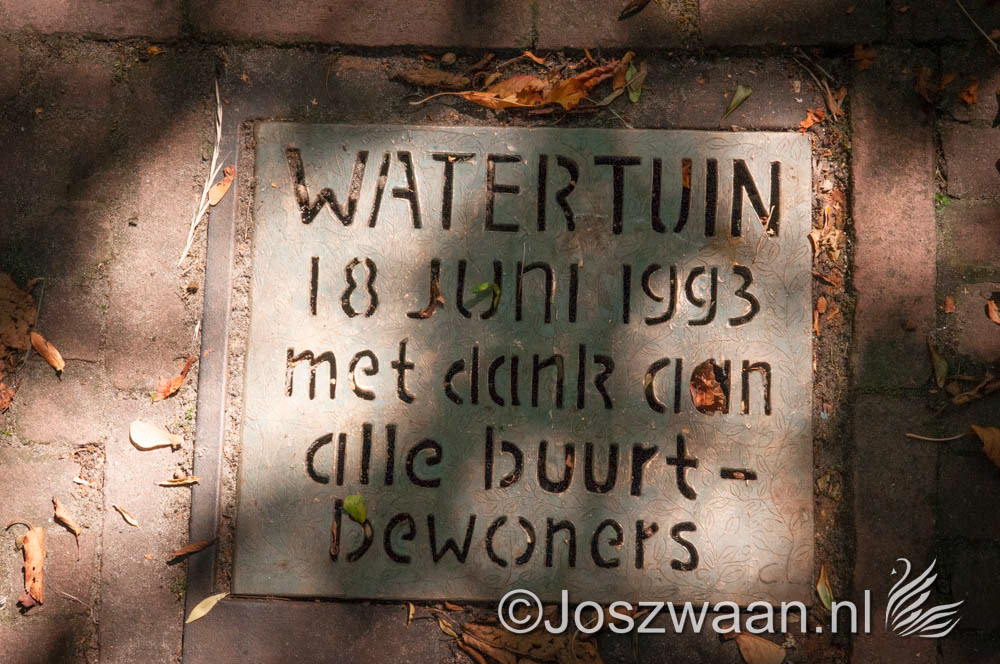 WATERTUIN
18 JUNI 1993
met dank aan
alle buurt-
bewoners
©Joszwaan.nl